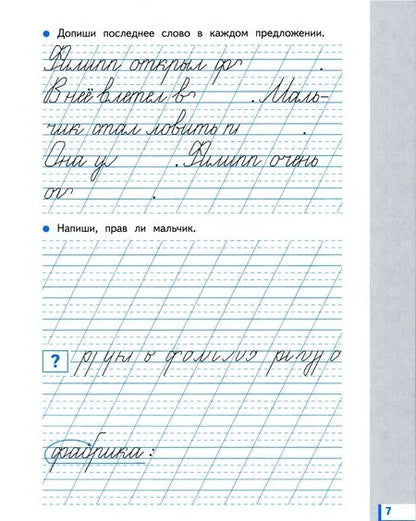 Допиши последнее слово в каждом предложении.
Филипп открыл ф .
В неё влетел в . Маль-
чик стал ловить п .
Она у . Филипп очень
ог .
Напиши, прав ли мальчик.
?
фабрика:
7